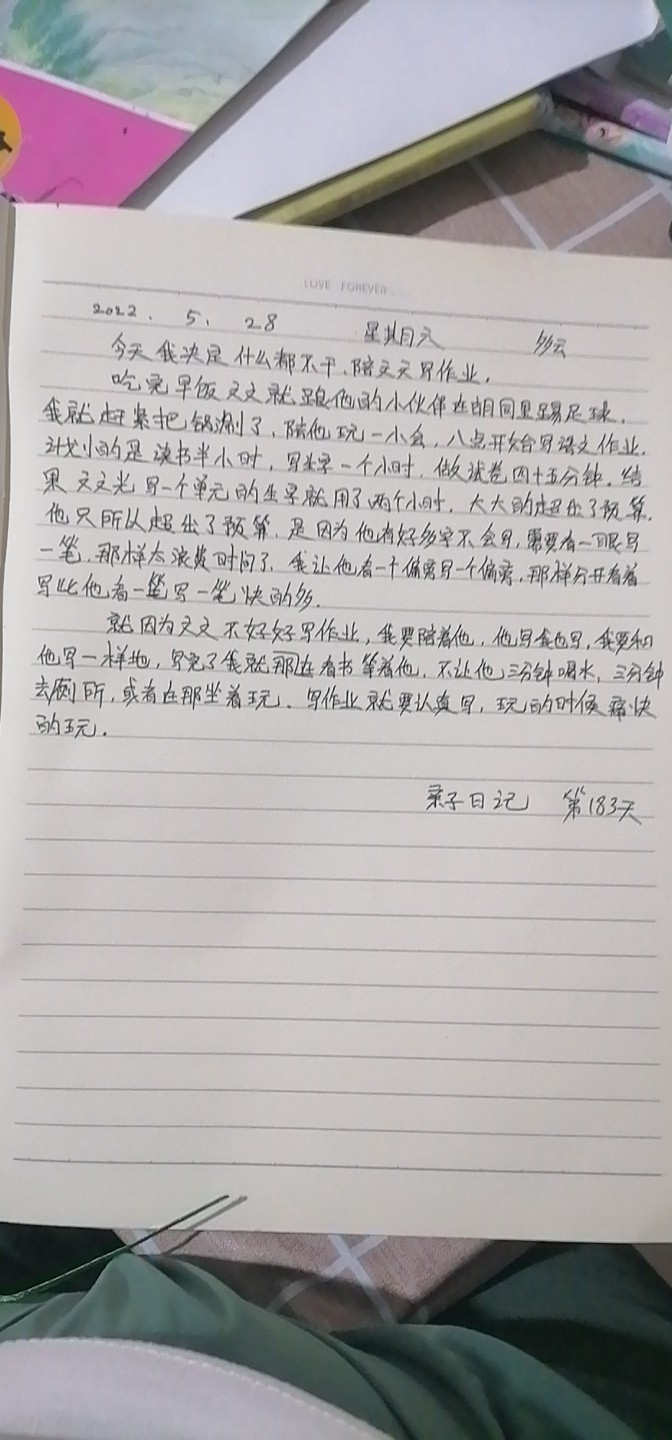 LOVE FOREVER
2022. 5. 28 星期六 多云
今天我决定什么都不干,陪文文写作业.
吃完早饭文文就跟他的小伙伴在胡同里踢足球.
我就赶紧把锅涮了,陪他玩一小会,八点开始写语文作业.
计划的是读书半小时,写生字一个小时,做试卷四十五分钟.结
果文文光写一个单元的生字就用了两个小时,大大的超出了预算.
他只所以超出了预算,是因为他有好多字不会写,需要看一眼写
一笔,那样太浪费时间了,我让他看一个偏旁写一个偏旁,那样分开看着
写比他看一笔写一笔快的多.
就因为文文不好好写作业,我要陪着他,他写我也写,我要和
他写一样地,写完了我就那在看书等着他,不让他三分钟喝水,三分钟
去厕所,或者在那坐着玩.写作业就要认真写,玩的时候痛快
的玩.
亲子日记 第183天